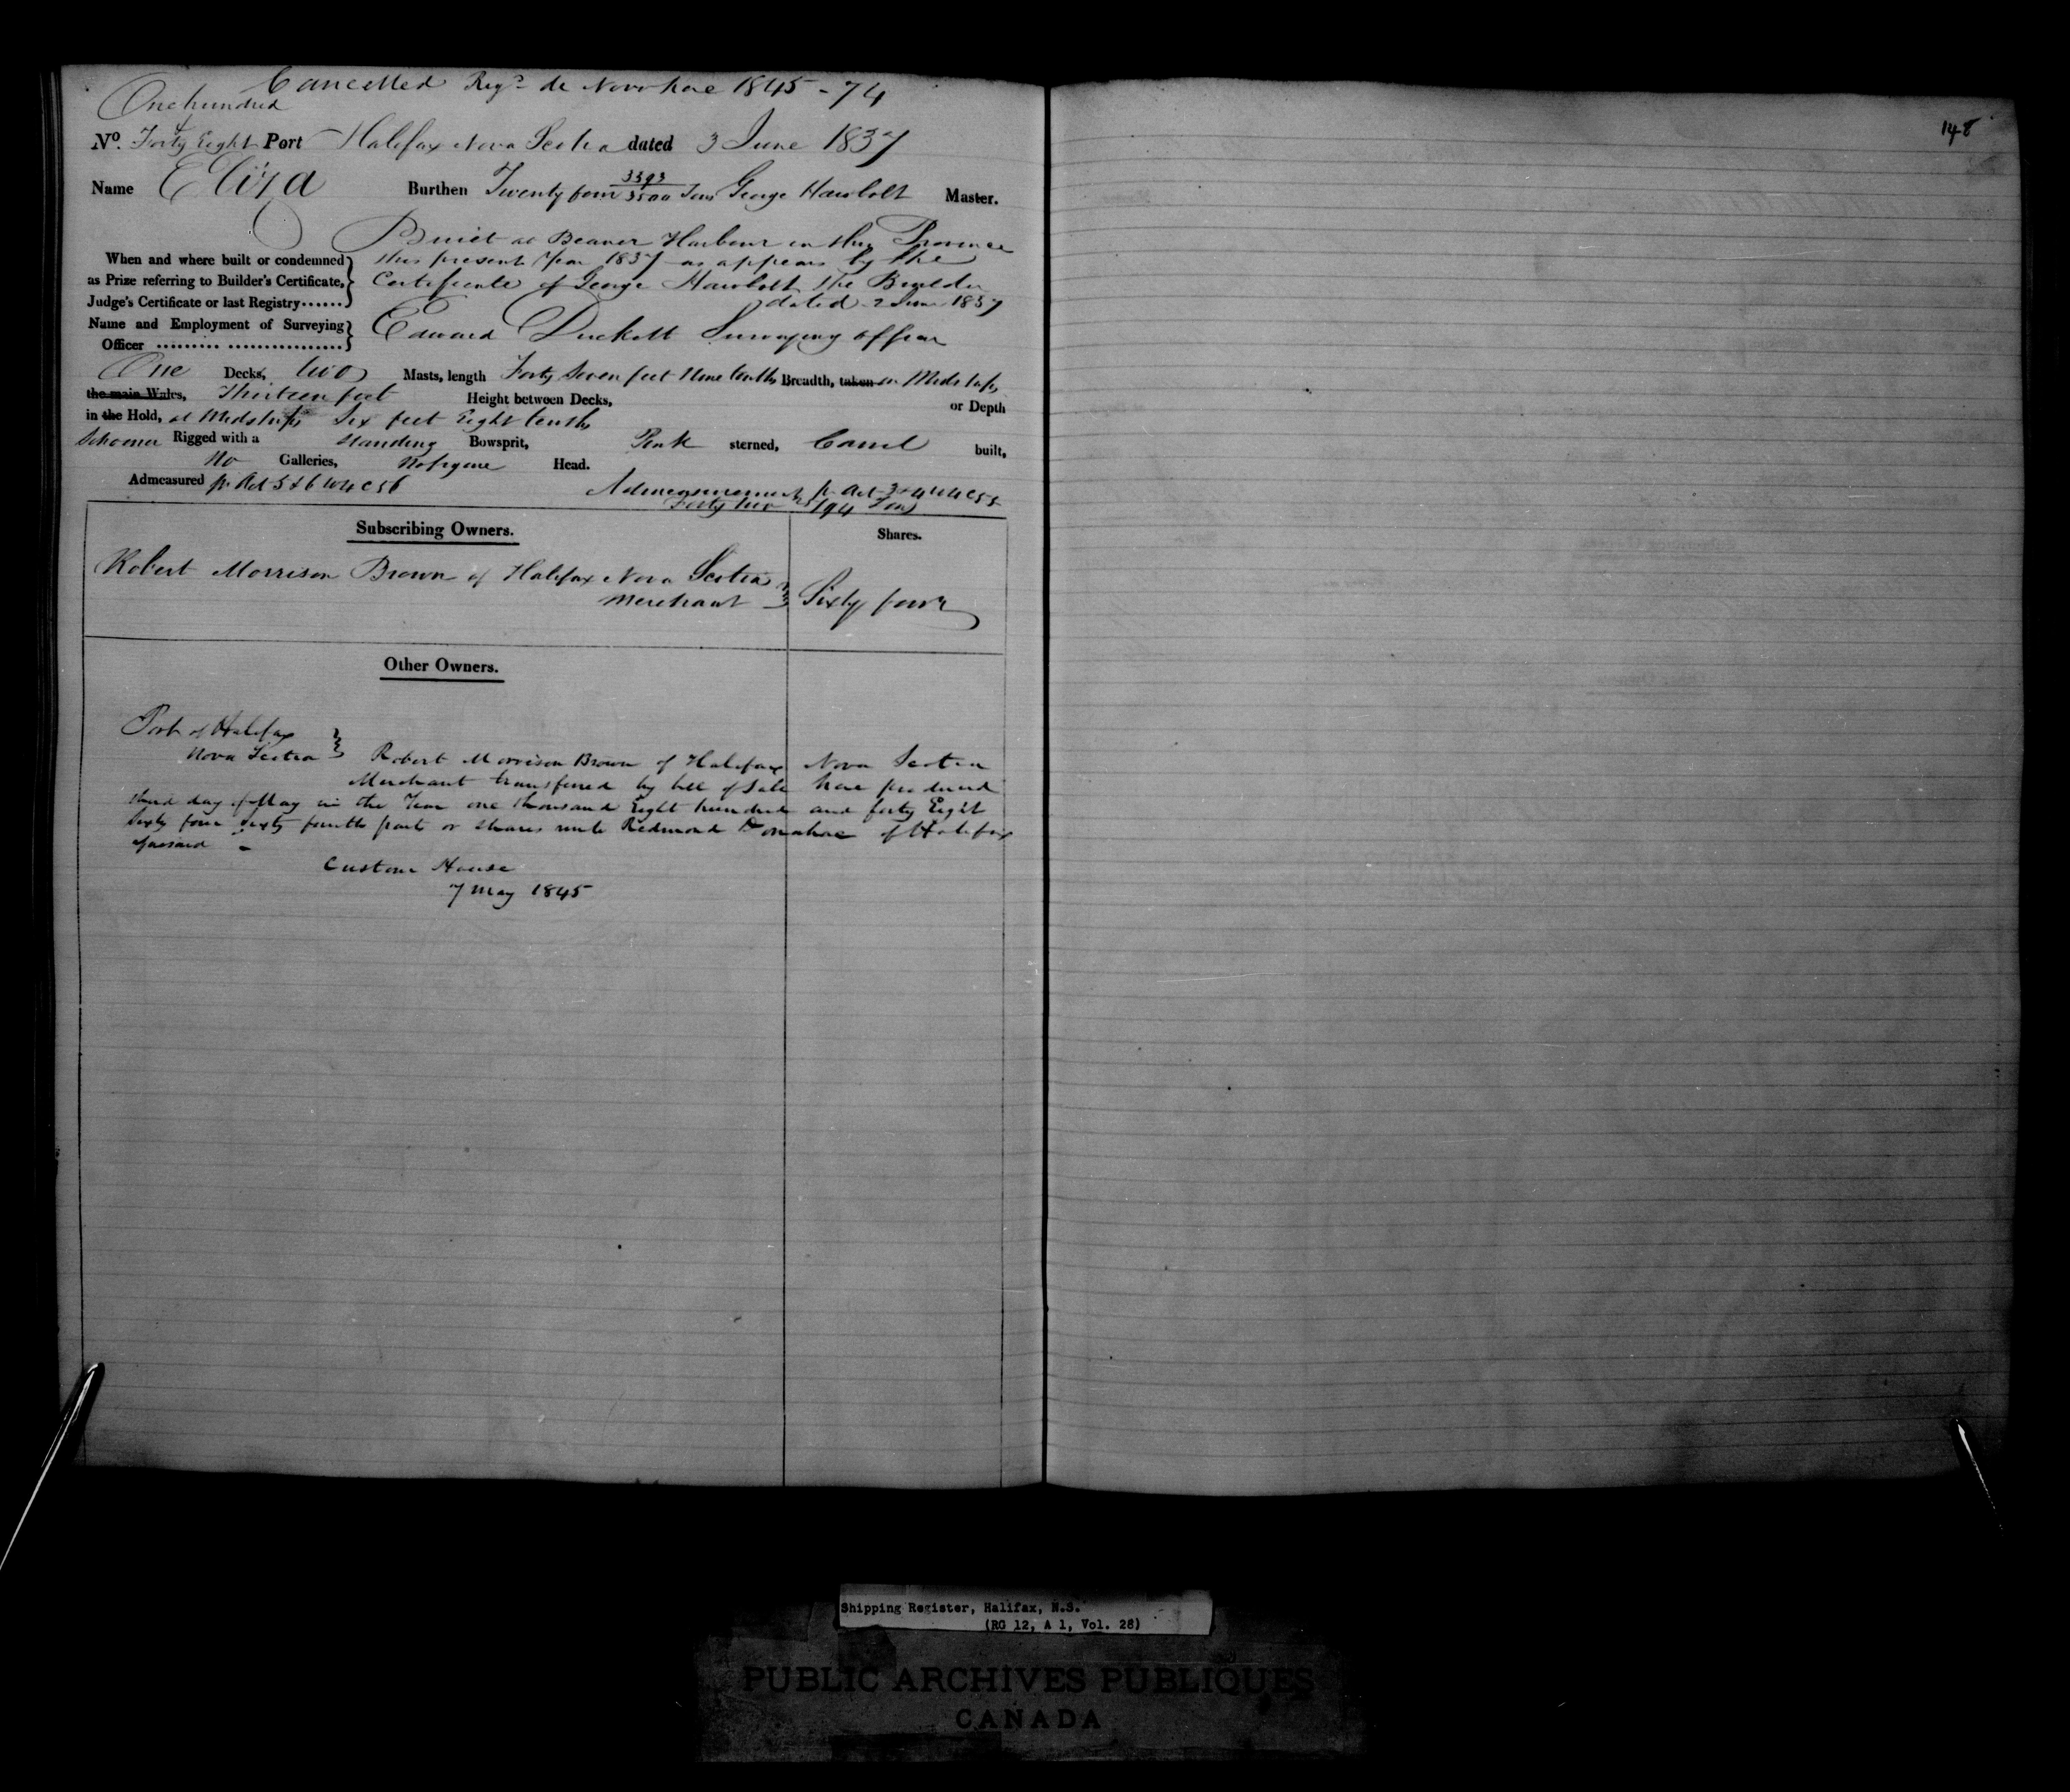 Cancelled Regd de Novo here 1845 - 74
One hundred
&
No. Forty Eight Port Halifax Nova Scotia dated 3 June 1837
Name Eliza Burthen Twenty four 3393/3500 Tons George Hawbolt Master.
Built at Beaver Harbour in this Province
When and where built or condemned this present Year 1837 as appears by the
as Prize referring to Builder's Certificate, Certificate of George Hawbolt the Builder
Judge's Certificate or last Registry...... dated 2 June 1837
Name and Employment of Surveying
Officer ......... ................ Edward Duckett Surveying officer
One Decks, two Masts, length Forty Seven feet Nine tenths Breadth, taken in Midships
the main Wales, Thirteen feet Height between Decks, or Depth
in the Hold, at Midships Six feet Eight tenths
Schooner Rigged with a standing Bowsprit, Pink sterned, Carvel built,
No Galleries, No figure Head.
Admeasured pr Act 5 & 6 W 4 C 56 Admeasurement pr Act 3 & 4 W 4 C 55
Forty two /94 Tons
Subscribing Owners. Shares.
Robert Morrison Brown of Halifax Nova Scotia
Merchant Sixty four
Other Owners.
Port of Halifax
Nova Scotia Robert Morrison Brown of Halifax Nova Scotia
Merchant transferred by bill of Sale here produced
third day of May in the Year one thousand Eight hundred and forty Eight
Sixty four sixty fourth parts or shares unto Redmond Donahoe of Halifax
aforesaid -
Custom House
7 May 1845
148
Shipping Register, Halifax, N.S.
(RG 12, A 1, Vol. 28)
PUBLIC ARCHIVES PUBLIQUES
CANADA